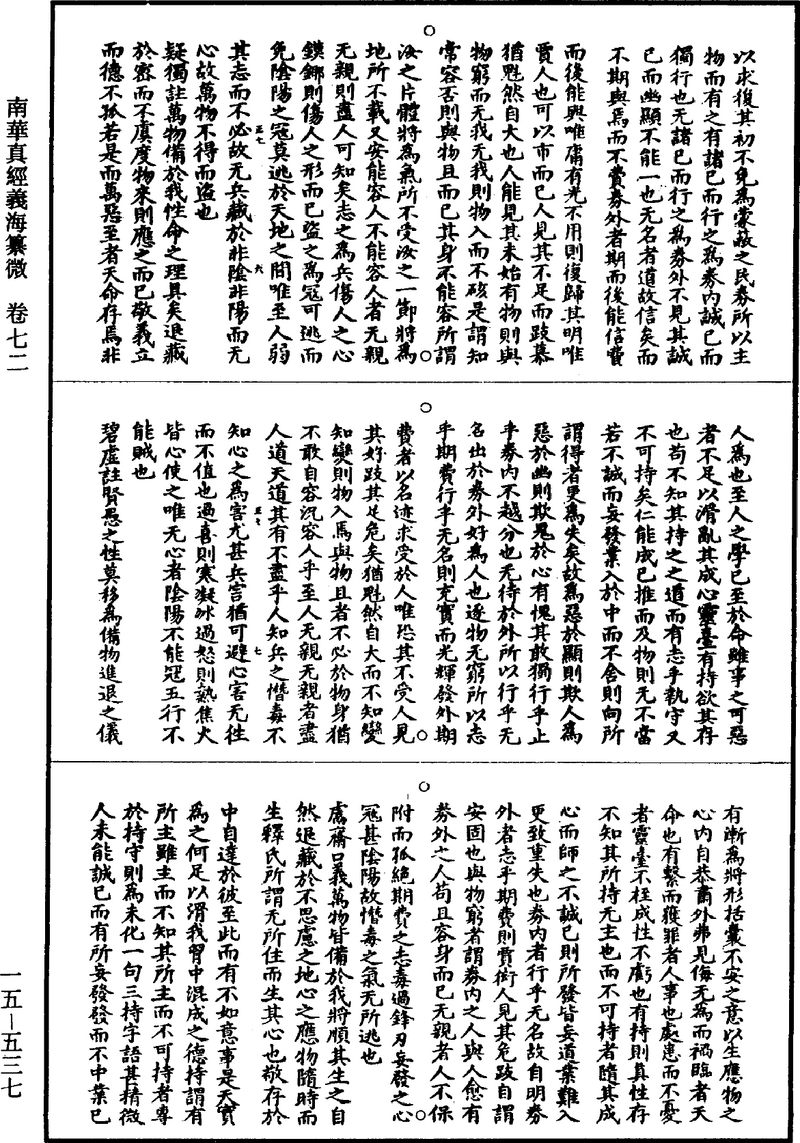 南華真經義海纂微　卷七二
一五—五三七
以求復其初不免為蒙蔽之民券所以主
物而有之有諸已而行之為券內誠已而
獨行也无諸已而行之為券外不見其誠
已而幽顯不能一也无名者道故信矣而
不期與焉而不費券外者期而後能信費
而後能與唯庸有光不用則復歸其明唯
賈人也可以市而已人見其不足而跂慕
猶魁然自大也人能見其未始有物則與
物窮而无我无我則物入而不硋是謂知
常容否則與物且而已其身不能容所謂
汝之片體將為氣所不受汝之一節將為
地所不載又安能容人不能容人者无親
无親則盡人可知矣志之為兵傷人之心
鏌鋣則傷人之形而已盜之為寇可逃而
免陰陽之寇莫逃於天地之間唯至人弱
其志而不必故无兵藏於非陰非陽而无
心故萬物不得而盜也
疑獨註萬物備於我性命之理具矣退藏
於密而不虞度物來則應之而已敬義立
而德不孤若是而萬惡至者天命存焉非
人為也至人之學已至於命雖事之可惡
者不足以滑亂其成心靈臺有持欲其存
也苟不知其持之之道而有志乎執守又
不可持矣仁能成已推而及物則无不當
若不誠而妄發業入於中而不舍則向所
謂得者更為失矣故為惡於顯則欺人為
惡於幽則欺鬼於心有愧其敢獨行乎止
乎券內不越分也无待於外所以行乎无
名出於券外好為人也逐物无窮所以志
乎期費行乎无名則充實而光輝發外期
費者以名迹求受於人唯恐其不受人見
其好跂其足危矣猶魁然自大而不知變
知變則物入焉與物且者不必於物身猶
不敢自容況容人乎至人无親无親者盡
人道天道其有不盡乎人知兵之憯毒不
知心之為害尤甚兵害猶可避心害无往
而不值也過喜則寒凝冰過怒則熱焦火
皆心使之唯无心者陰陽不能寇五行不
能賊也
碧虛註賢愚之性莫移為備物進退之儀
有漸為將形括囊不安之意以生應物之
心內自恭肅外弗見侮无為而禍臨者天
命也有繫而獲罪者人事也處患而不憂
者靈臺不桎成性不虧也有持則真性存
不知其所持无主也而不可持者隨其成
心而師之不誠已則所發皆妄道業難入
更致重失也券內者行乎无名故自明券
外者志乎期費則賈衒人見其危跂自謂
安固也與物窮者謂券內之人與人愈有
券外之人苟且容身而已无親者人不保
附而孤絕期費之志毒過鋒刃妄發之心
寇甚陰陽故憯毒之氣无所逃也
鬳齋口義萬物皆備於我將順其生之自
然退藏於不思慮之地心之應物隨時而
生釋氏所謂无所住而生其心也敬存於
中自達於彼至此而有不如意事是天實
為之何足以滑我胷中混成之德持謂有
所主雖主而不知其所主而不可持者專
於持守則為未化一句三持字語甚精微
人未能誠已而有所妄發發而不中業已